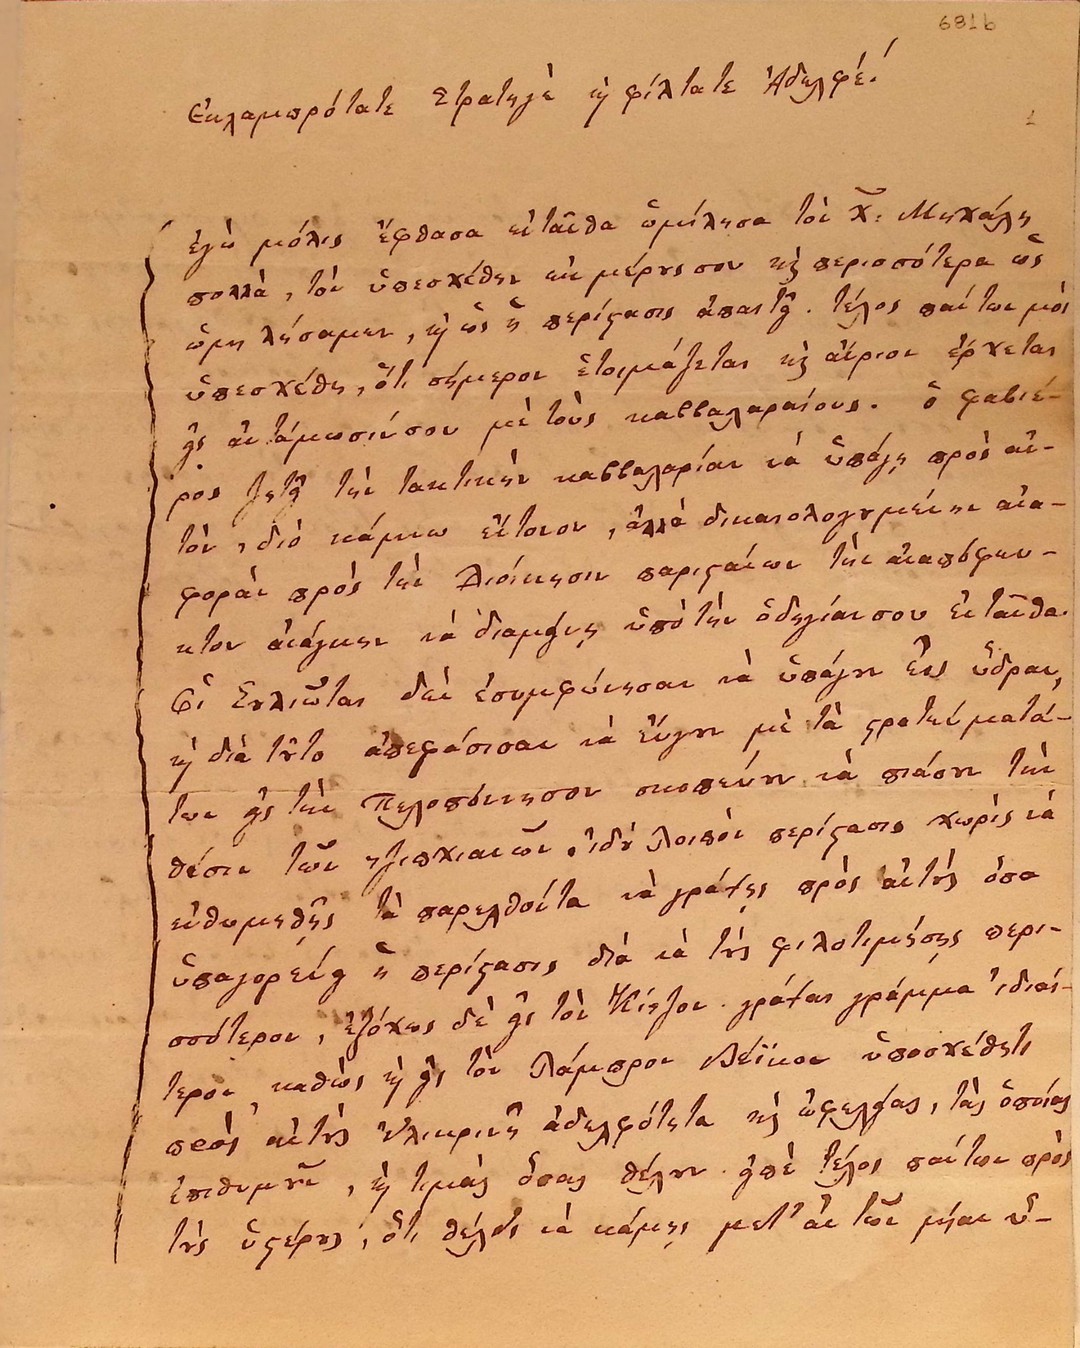 681b
1
Ἐκλαμπρότατε Στρατηγὲ κ̀ φίλτατε Ἀδελφέ!
ἐγὼ μόλις ἔφθασα ἐνταῦθα ὡμίλησα τὸν Χ: Μηχάλη
πολλὰ, τὸν ὑπεσχέθην ἐκ μέρους σου κ̀ περισσότερα ὡς
ὡμηλήσαμεν, κ̀ ὡς ἡ περίστασις ἀπαιτεῖ. τέλος πάντων μοὶ
ὑπεσχέθη, ὅτι σήμερον ἑτοιμάζεται κ̀ αὔριον ἔρχεται
εἰς ἀντάμωσίν σου μὲ τοὺς καββαλαραίους. ὁ φαβιέ-
ρος ζητεῖ τὴν τακτικὴν καββαλαρίαν νὰ ὑπάγῃ πρὸς αὐ-
τὸν, διὸ κάμνω ἔντονον, ἀλλὰ δικαιολογημένην ἀνα-
φορὰν πρὸς τὴν Διοίκησιν παρισταίνων τὴν ἀναπόφευ-
κτον ἀνάγκην νὰ διαμείνῃ ὑπὸ τὴν ὁδηγίαν σου ἐνταῦθα.
Οἱ Σουλιῶται δὲν ἐσυμφώνησαν νὰ ὑπάγουν εἰς ὕδραν,
κ̀ διὰ τοῦτο ἀπεφάσισαν νὰ εὔγουν μὲ τὰ στρατεύματά-
των εἰς τὴν Πελοπόννησον σκοπεύουν νὰ πιάσουν τὴν
θέσιν τῶν ἰδοὺ λοιπὸν περίστασις χωρὶς νὰ
ἐνθυμηθῇς τὰ παρελθόντα νὰ γράψῃς πρὸς αὐτοὺς ὅσα
ὑπαγορεύει ἡ περίστασις διὰ νὰ τοὺς φιλοτιμήσῃς περι-
σσότερον, ἐξόχως δὲ εἰς τὸν γράψαι γράμμα ἰδιαί-
τερον, καθὼς κ̀ εἰς τὸν Λάμπρον Βέϊκον ὑποσχέθητι
πρὸς αὐτοὺς εἰλικρινῆ ἀδελφότητα κ̀ ὠφελείας, τὰς ὁποίας
ἐπιθυμοῦν, κ̀ τιμὰς ὅσας θέλουν. εἰπὲ τέλος πάντων πρὸς
τοὺς ὑστέρους, ὅτι θέλεις νὰ κάμῃς μετ' αὐτῶν μίαν ὑ-